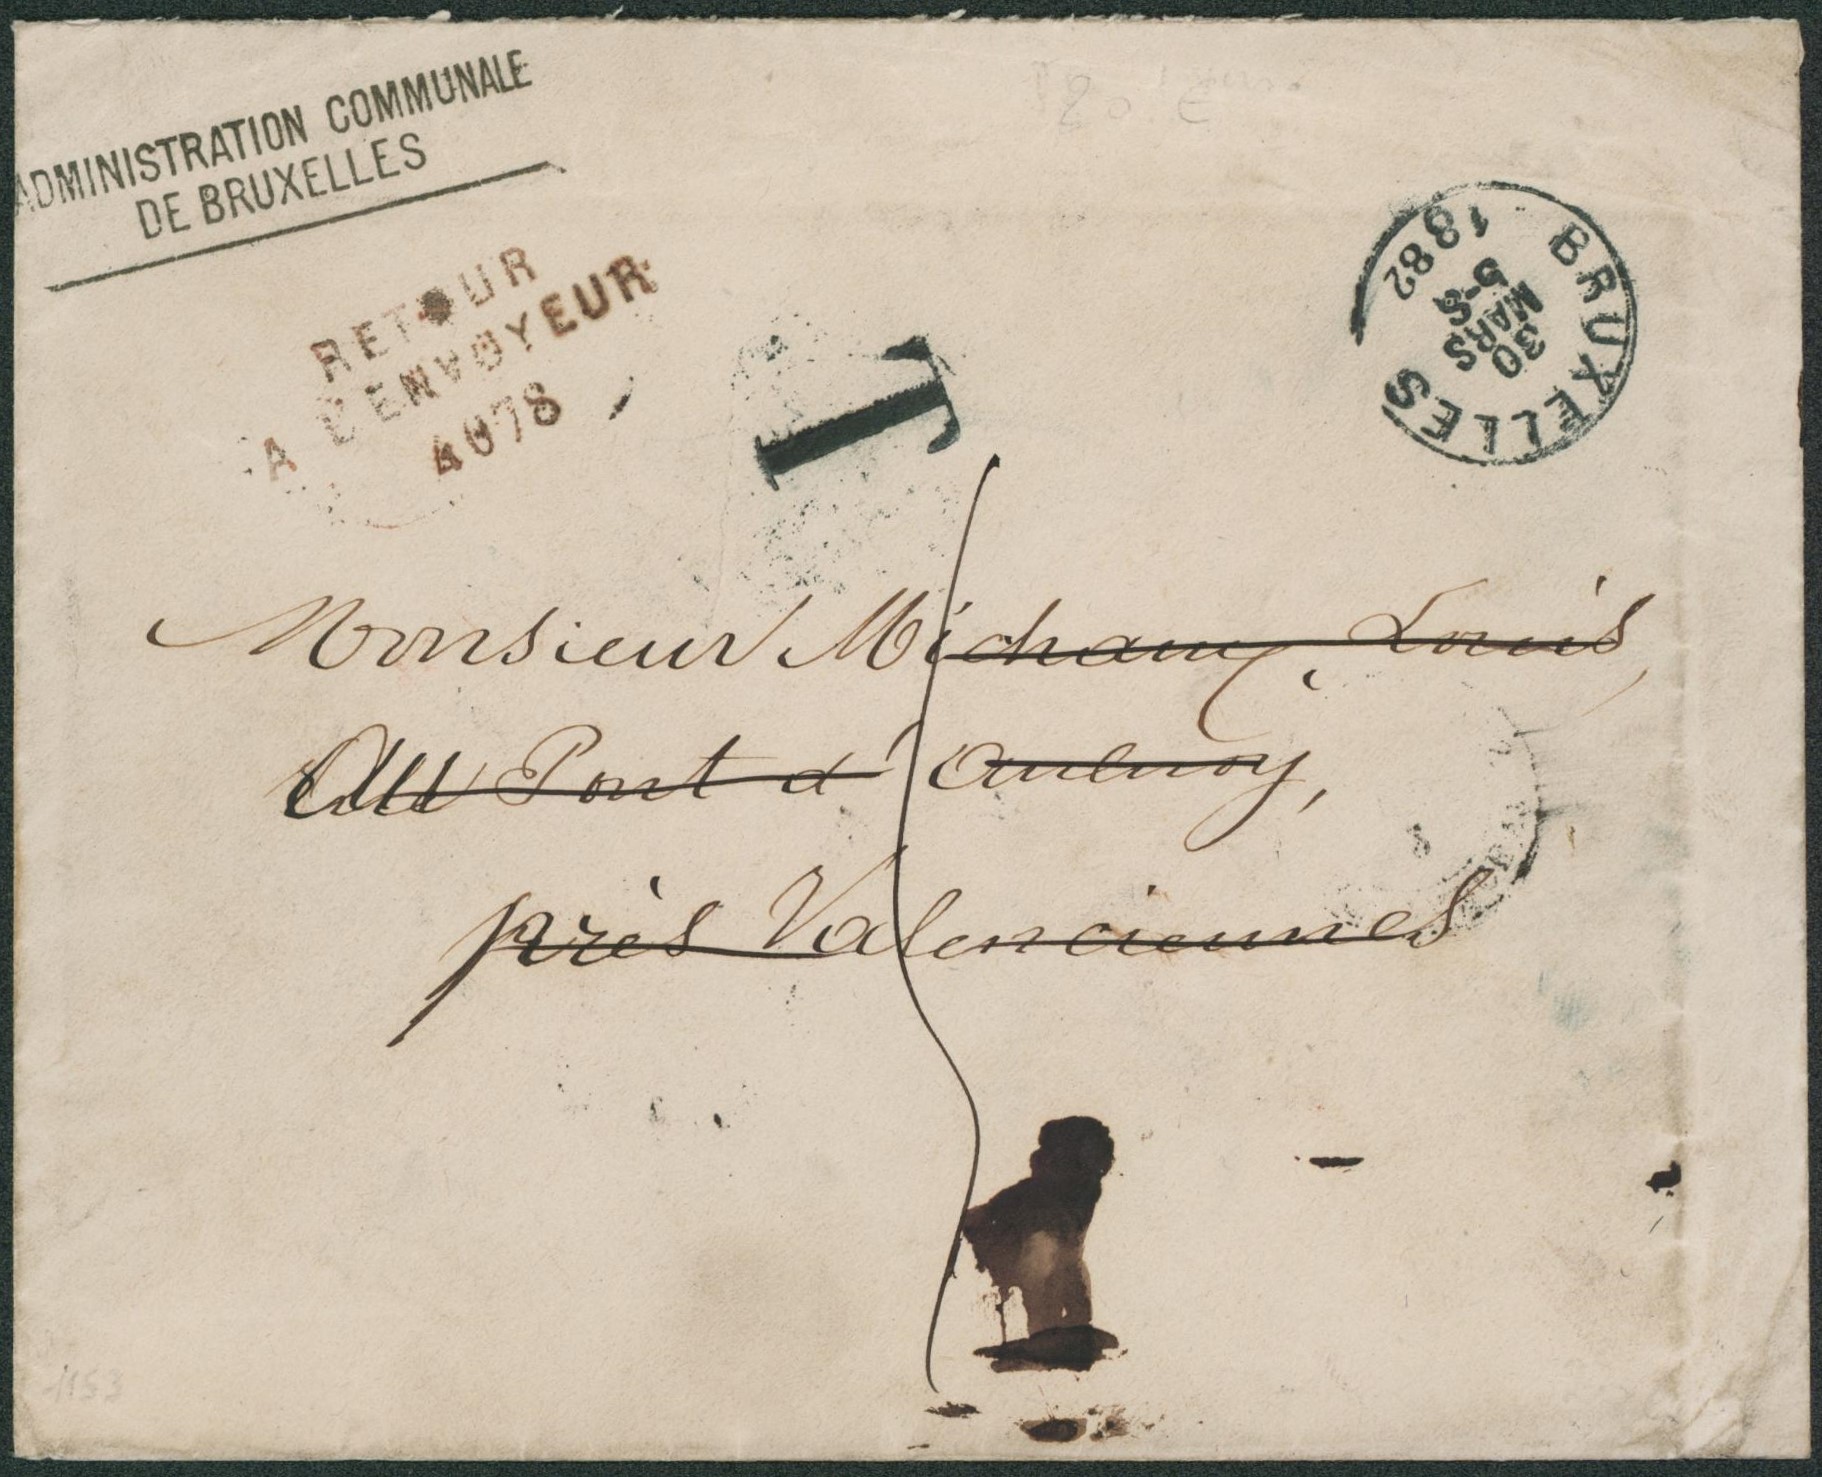 ADMINISTRATION COMMUNALE
DE BRUXELLES
RETOUR
A L'ENVOYEUR
4078
T
BRUXELLES
30
MARS
5-S
1882
Monsieur Michaux, Louis,
Au Pont d'Aulnoy,
près Valenciennes
1153